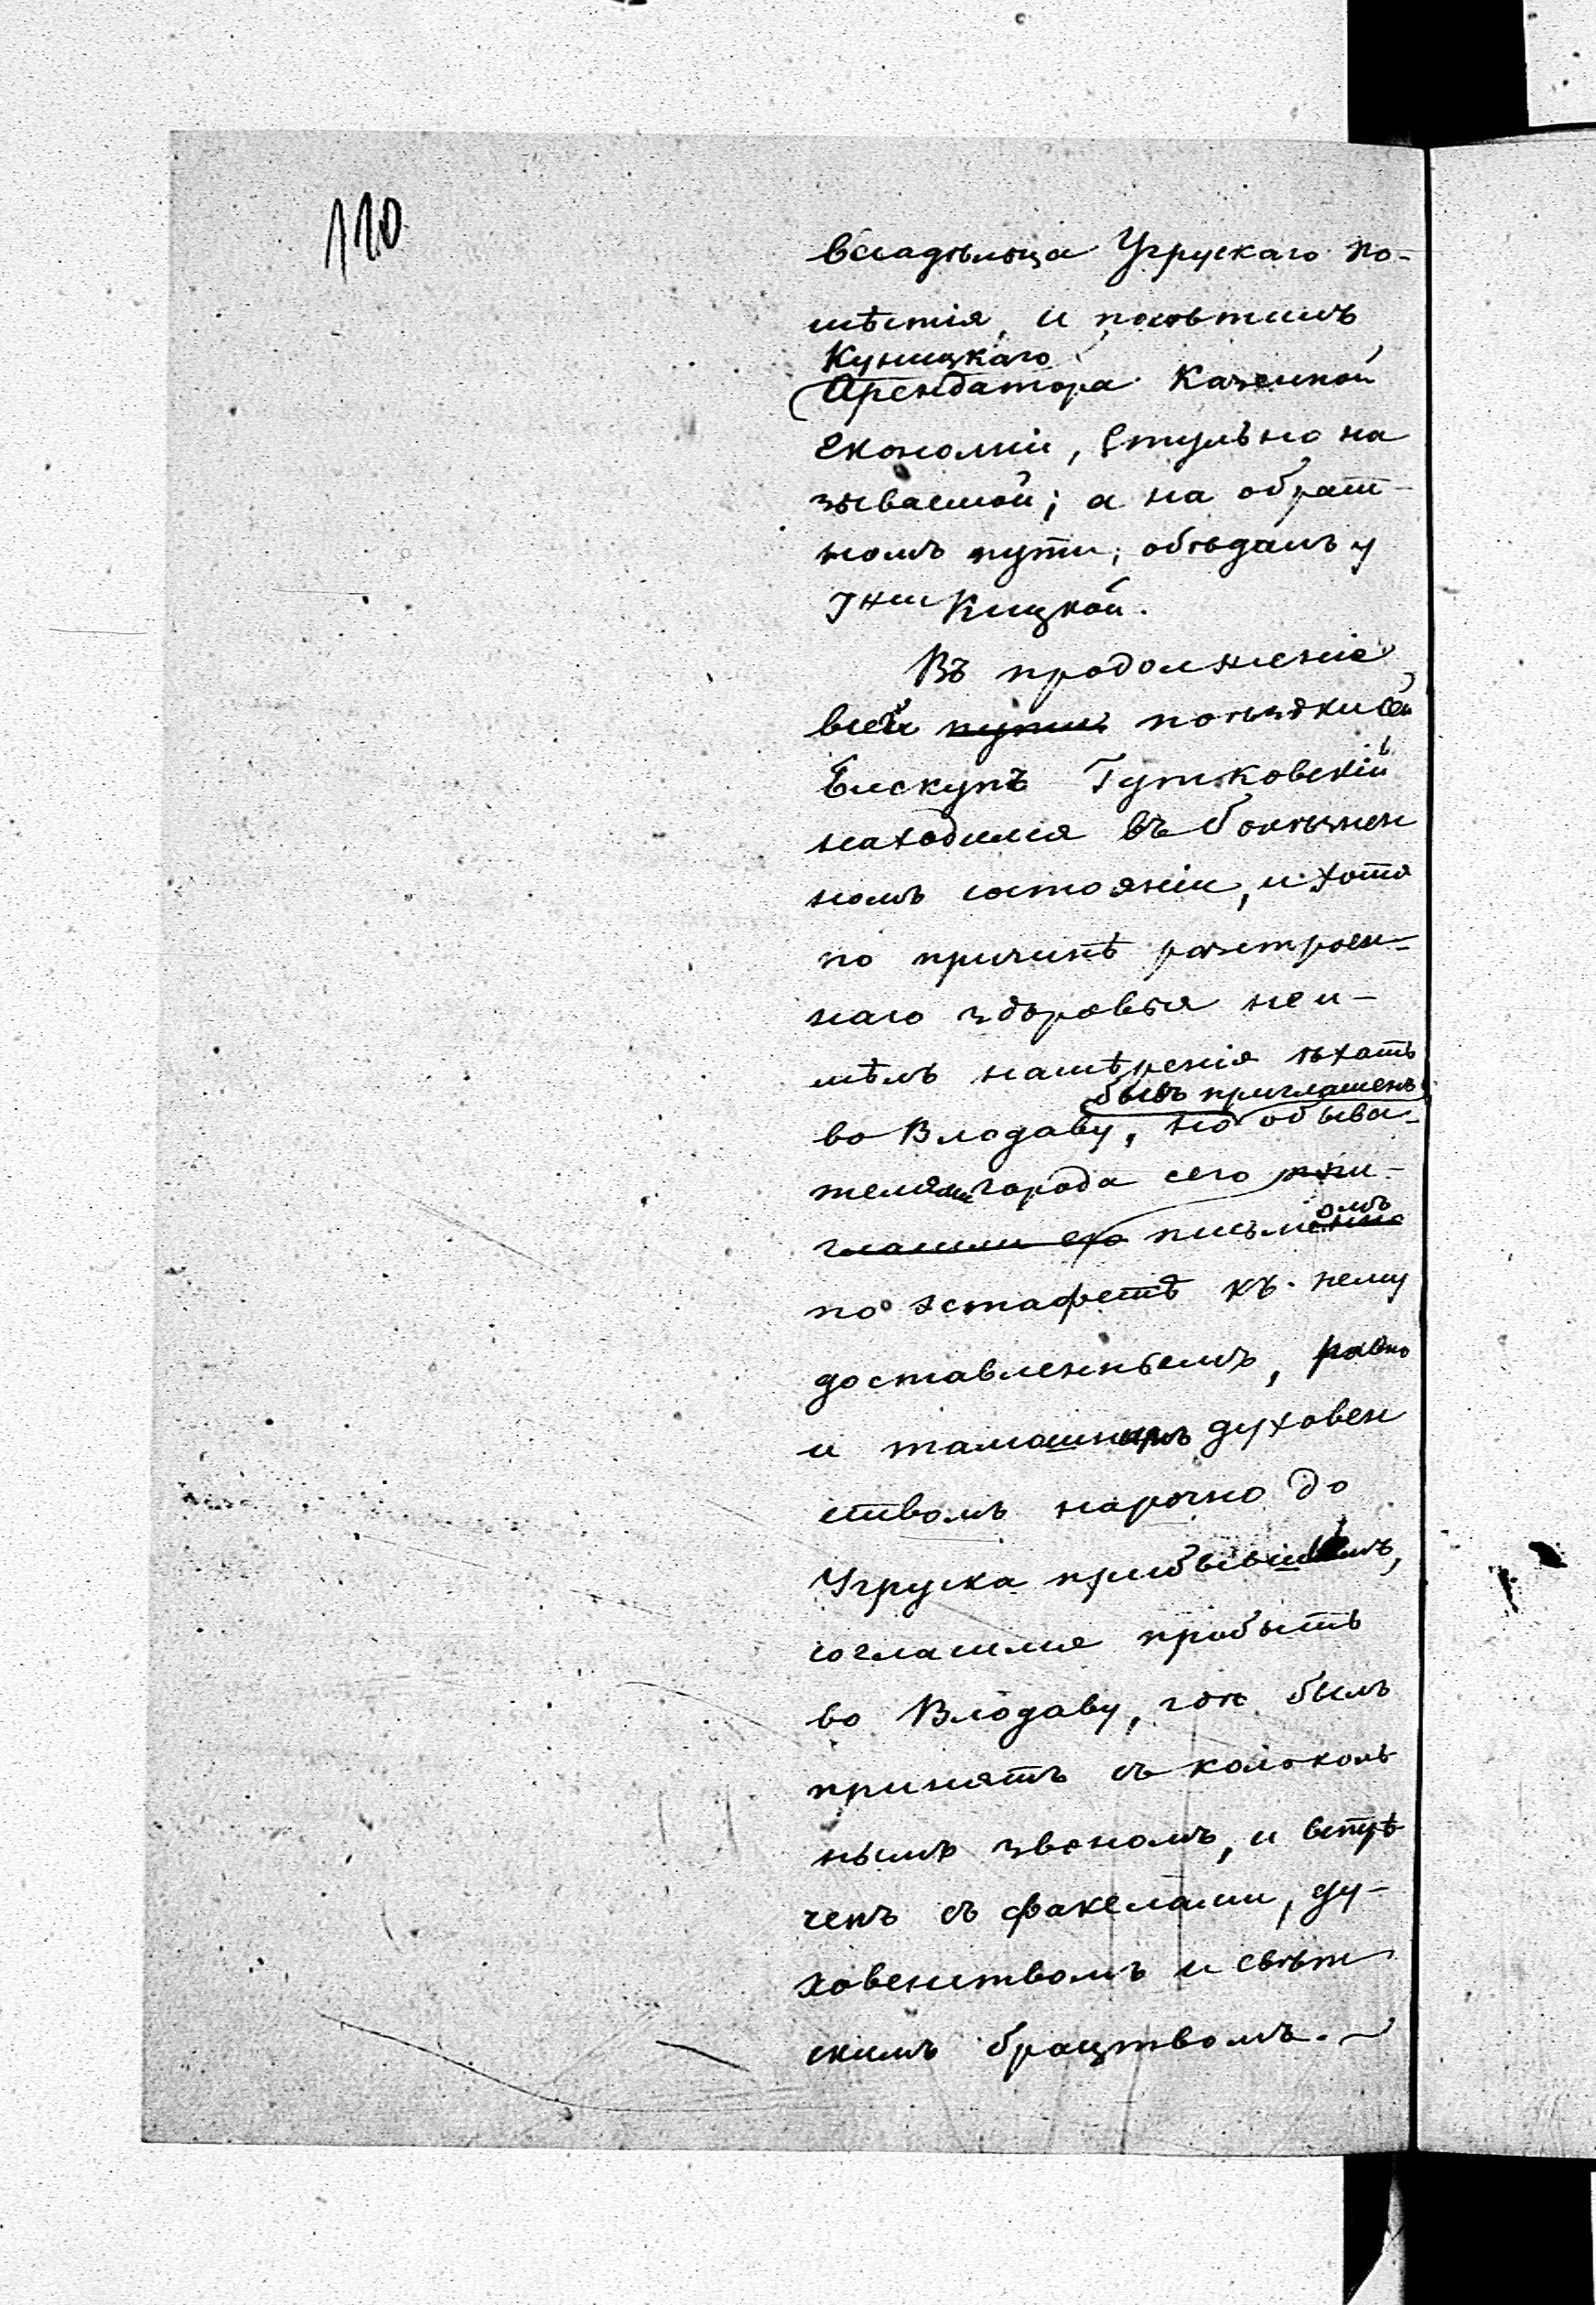 110
владѣльца Угрускаго по-
мѣстія, и посѣтилъ
Куницкаго
Арендатора Казенной
Економіи, Стульно на
зываемой; а на обрат-
номъ пути, обѣдалъ у
Гжи Кицкой.
Въ продолженіе
всей пути поѣздки сей
Бискупъ Гутковскій
находился въ болѣзнен
номъ состояніи, и хотя
по причинѣ разстроен-
наго здоровья неи-
мѣлъ намѣренія ѣхать
бывъ приглашенъ
во Влодаву, но обыва-
телями города сего при-
гласили его письмомъ
по эстафетѣ къ нему
доставленнымъ, равно
и тамошнимъ духовен
ствомъ нарочно до
Угруска прибывшимъ,
согласился пробыть
во Влодаву, гдѣ былъ
принятъ съ колоколь
нымъ звономъ, и встрѣ
ченъ съ факелами, ду-
ховенствомъ и свѣт
скимъ брацтвомъ.